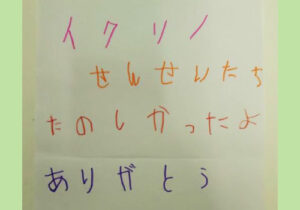 イクリノ
せんせいたち
たのしかったよ
ありがとう